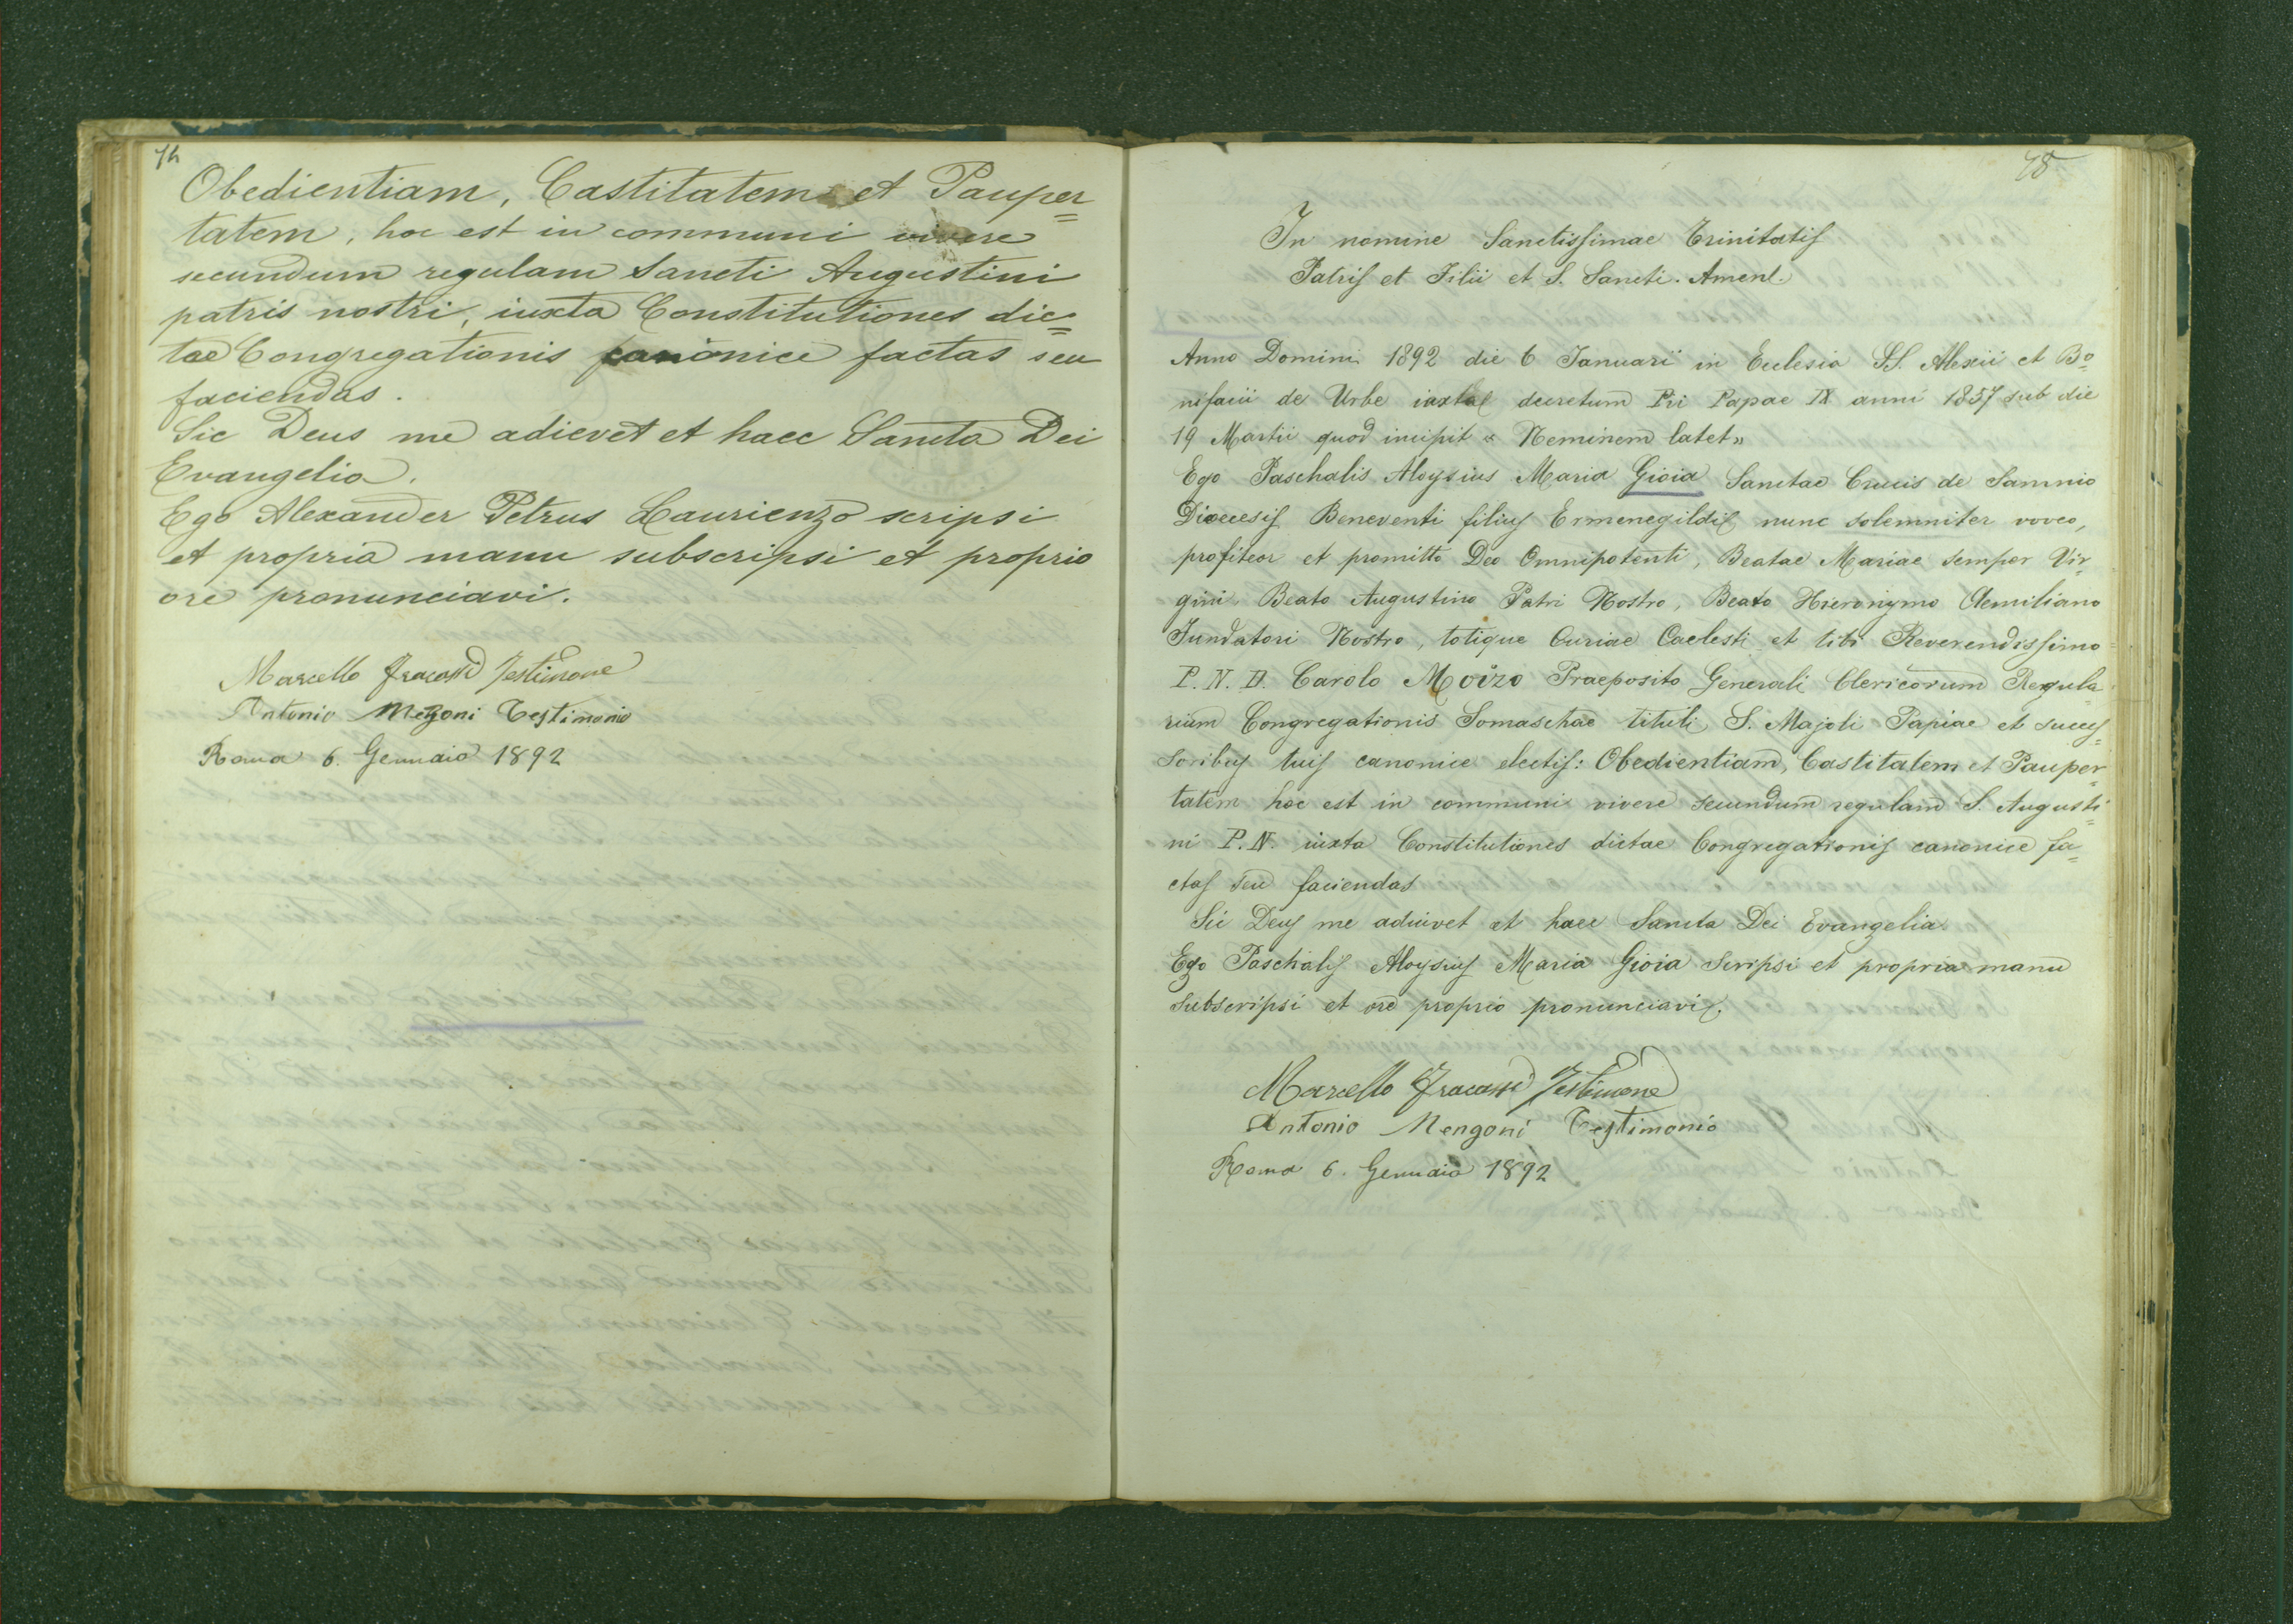 74
Obedientiam, Castitatem et Pauper=
tatem, hoc est in communi vivere
secundum regulam Sancti Augustini
patris nostri, iuxta Constitutiones dic=
tae Congregationis canonice factas seu
faciendas.
Sic Deus me adievet et haec Sancta Dei
Evangelia.
Ego Alexander Petrus Laurienzo scripsi
et propria manu subscripsi et proprio
ore pronunciavi.
Marcello Fracassi Testimone
Antonio Mengoni Testimonio
Roma 6. Gennaio 1892
75
In nomine Sanctissimae Trinitatis
Patris et Filii et S. Sancti. Amen.
Anno Domini 1892 die 6 Januarii in Ecclesia SS. Alexii et Bo=
nifacii de Urbe iuxta decretum Pii Papae IX anni 1857 sub die
19 Martii quod incipit « Neminem latet»
Ego Paschalis Aloysius Maria Gioia Sanctae Crucis de Samnio
Dioecesis Beneventi filius Ermenegildi nunc solemniter voveo,
profiteor et promitto Deo Omnipotenti, Beatae Mariae semper Vir=
gini Beato Augustino Patri Nostro, Beato Hieronymo Aemiliano
Fundatori Nostro, totique Curiae Caelesti et tibi Reverendissimo
P. N. D. Carolo Moizo Praeposito Generali Clericorum Regula
rium Congregationis Somaschae tituli S. Majoli Papiae et succes=
soribus tuis canonice electis: Obedientiam, Castitatem et Pauper=
tatem hoc est in communi vivere secundum regulam S. Augusti=
ni P. N. iuxta Constitutiones dictae Congregationis canonice fa=
ctas seu faciendas
Sic Deus me adiuvet et haec Sancta Dei Evangelia.
Ego Paschalis Aloysius Maria Gioia scripsi et propria manu
subscripsi et ore proprio pronunciavi.
Marcello Fracassi Testimone
Antonio Mengoni Testimonio
Roma 6. Gennaio 1892